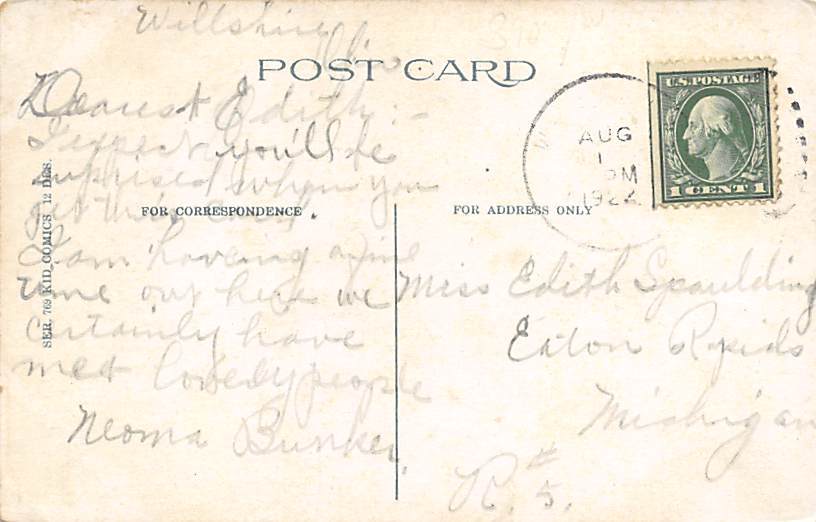 Willshire
Ohio
POST CARD
Dearest Edith:-
I expect you'll be
surprised when you
get this card.
I am haveing a fine
time out here we
certainly have
met lovely people
Neoma Bunker
FOR CORRESPONDENCE
SER. 769 KID COMICS 12 DES.
U.S. POSTAGE
1 CENT 1
AUG
1
PM
1922
FOR ADDRESS ONLY
Miss Edith Spaulding
Eaton Rapids
Michigan
R. # 5.